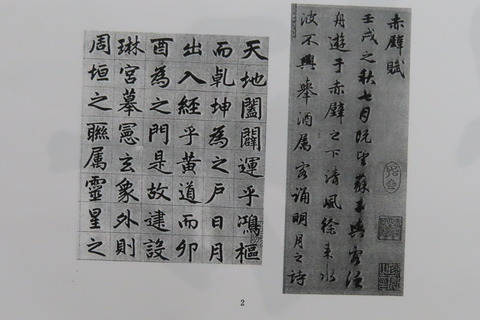 天地闔闢運乎鴻樞
而乾坤為之戶日月
出入經乎黃道而卯
酉為之門是故建設
琳宮摹憲玄象外則
周垣之聯属靈星之
赤壁賦
壬戌之秋七月既望蘇子與客泛
舟遊于赤壁之下清風徐来水
波不興舉酒属客誦明月之詩
2